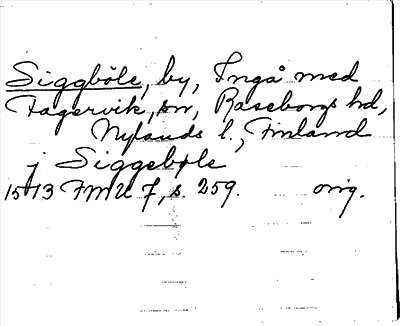 Siggböle, by, Ingå med
Fagervik, sn, Raseborgs hd,
Nylands l., Finland
j Siggebøle
1513 FMU 7, s. 259. orig.